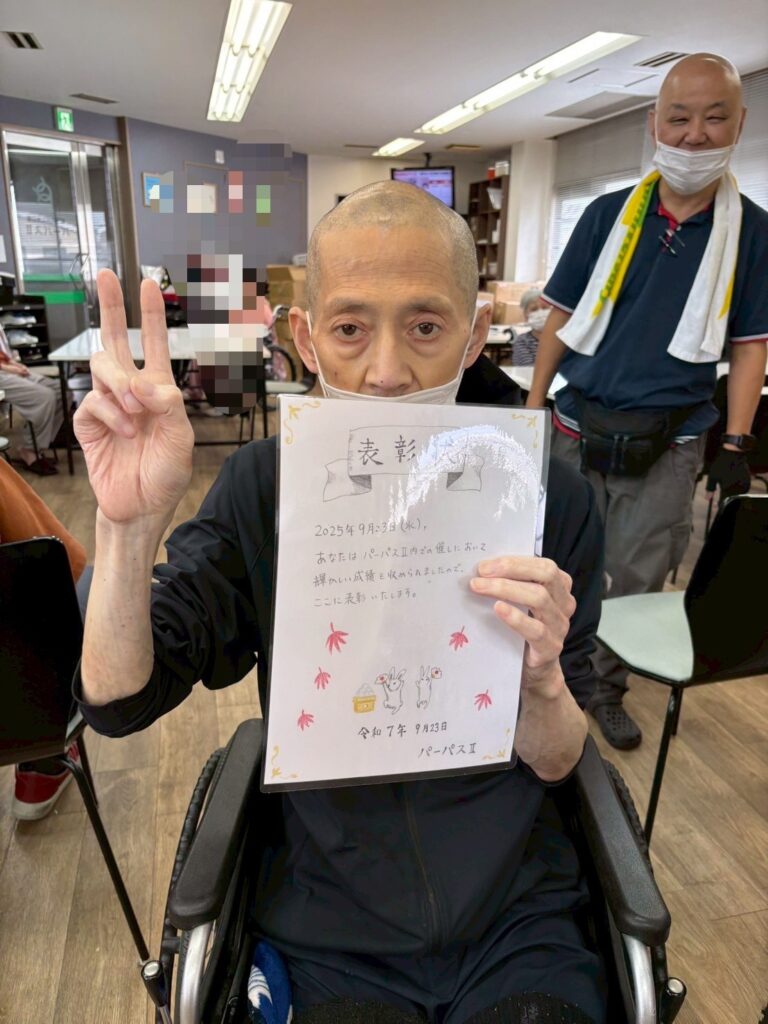 表彰
2025年9月23日(火)。
あなたは パーパスⅡ内での催しにおいて
輝かしい成績を収められましたので、
ここに表彰いたします。
令和7年 9月23日
パーパスⅡ